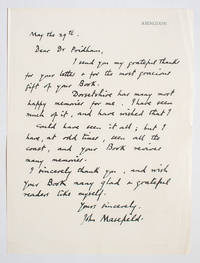 ABINGDON
May the 29th.
Dear Dr Pridham,
I send you my grateful thanks
for your letter & for the most gracious
gift of your Book.
Dorsetshire has many most
happy memories for me. I have seen
much of it, and have wished that I
could have seen it all; but I
have, at odd times, seen all the
coast, and your Book revives
many memories.
I sincerely thank you, and wish
your Book many glad & grateful
readers like myself.
Yours sincerely,
John Masefield.